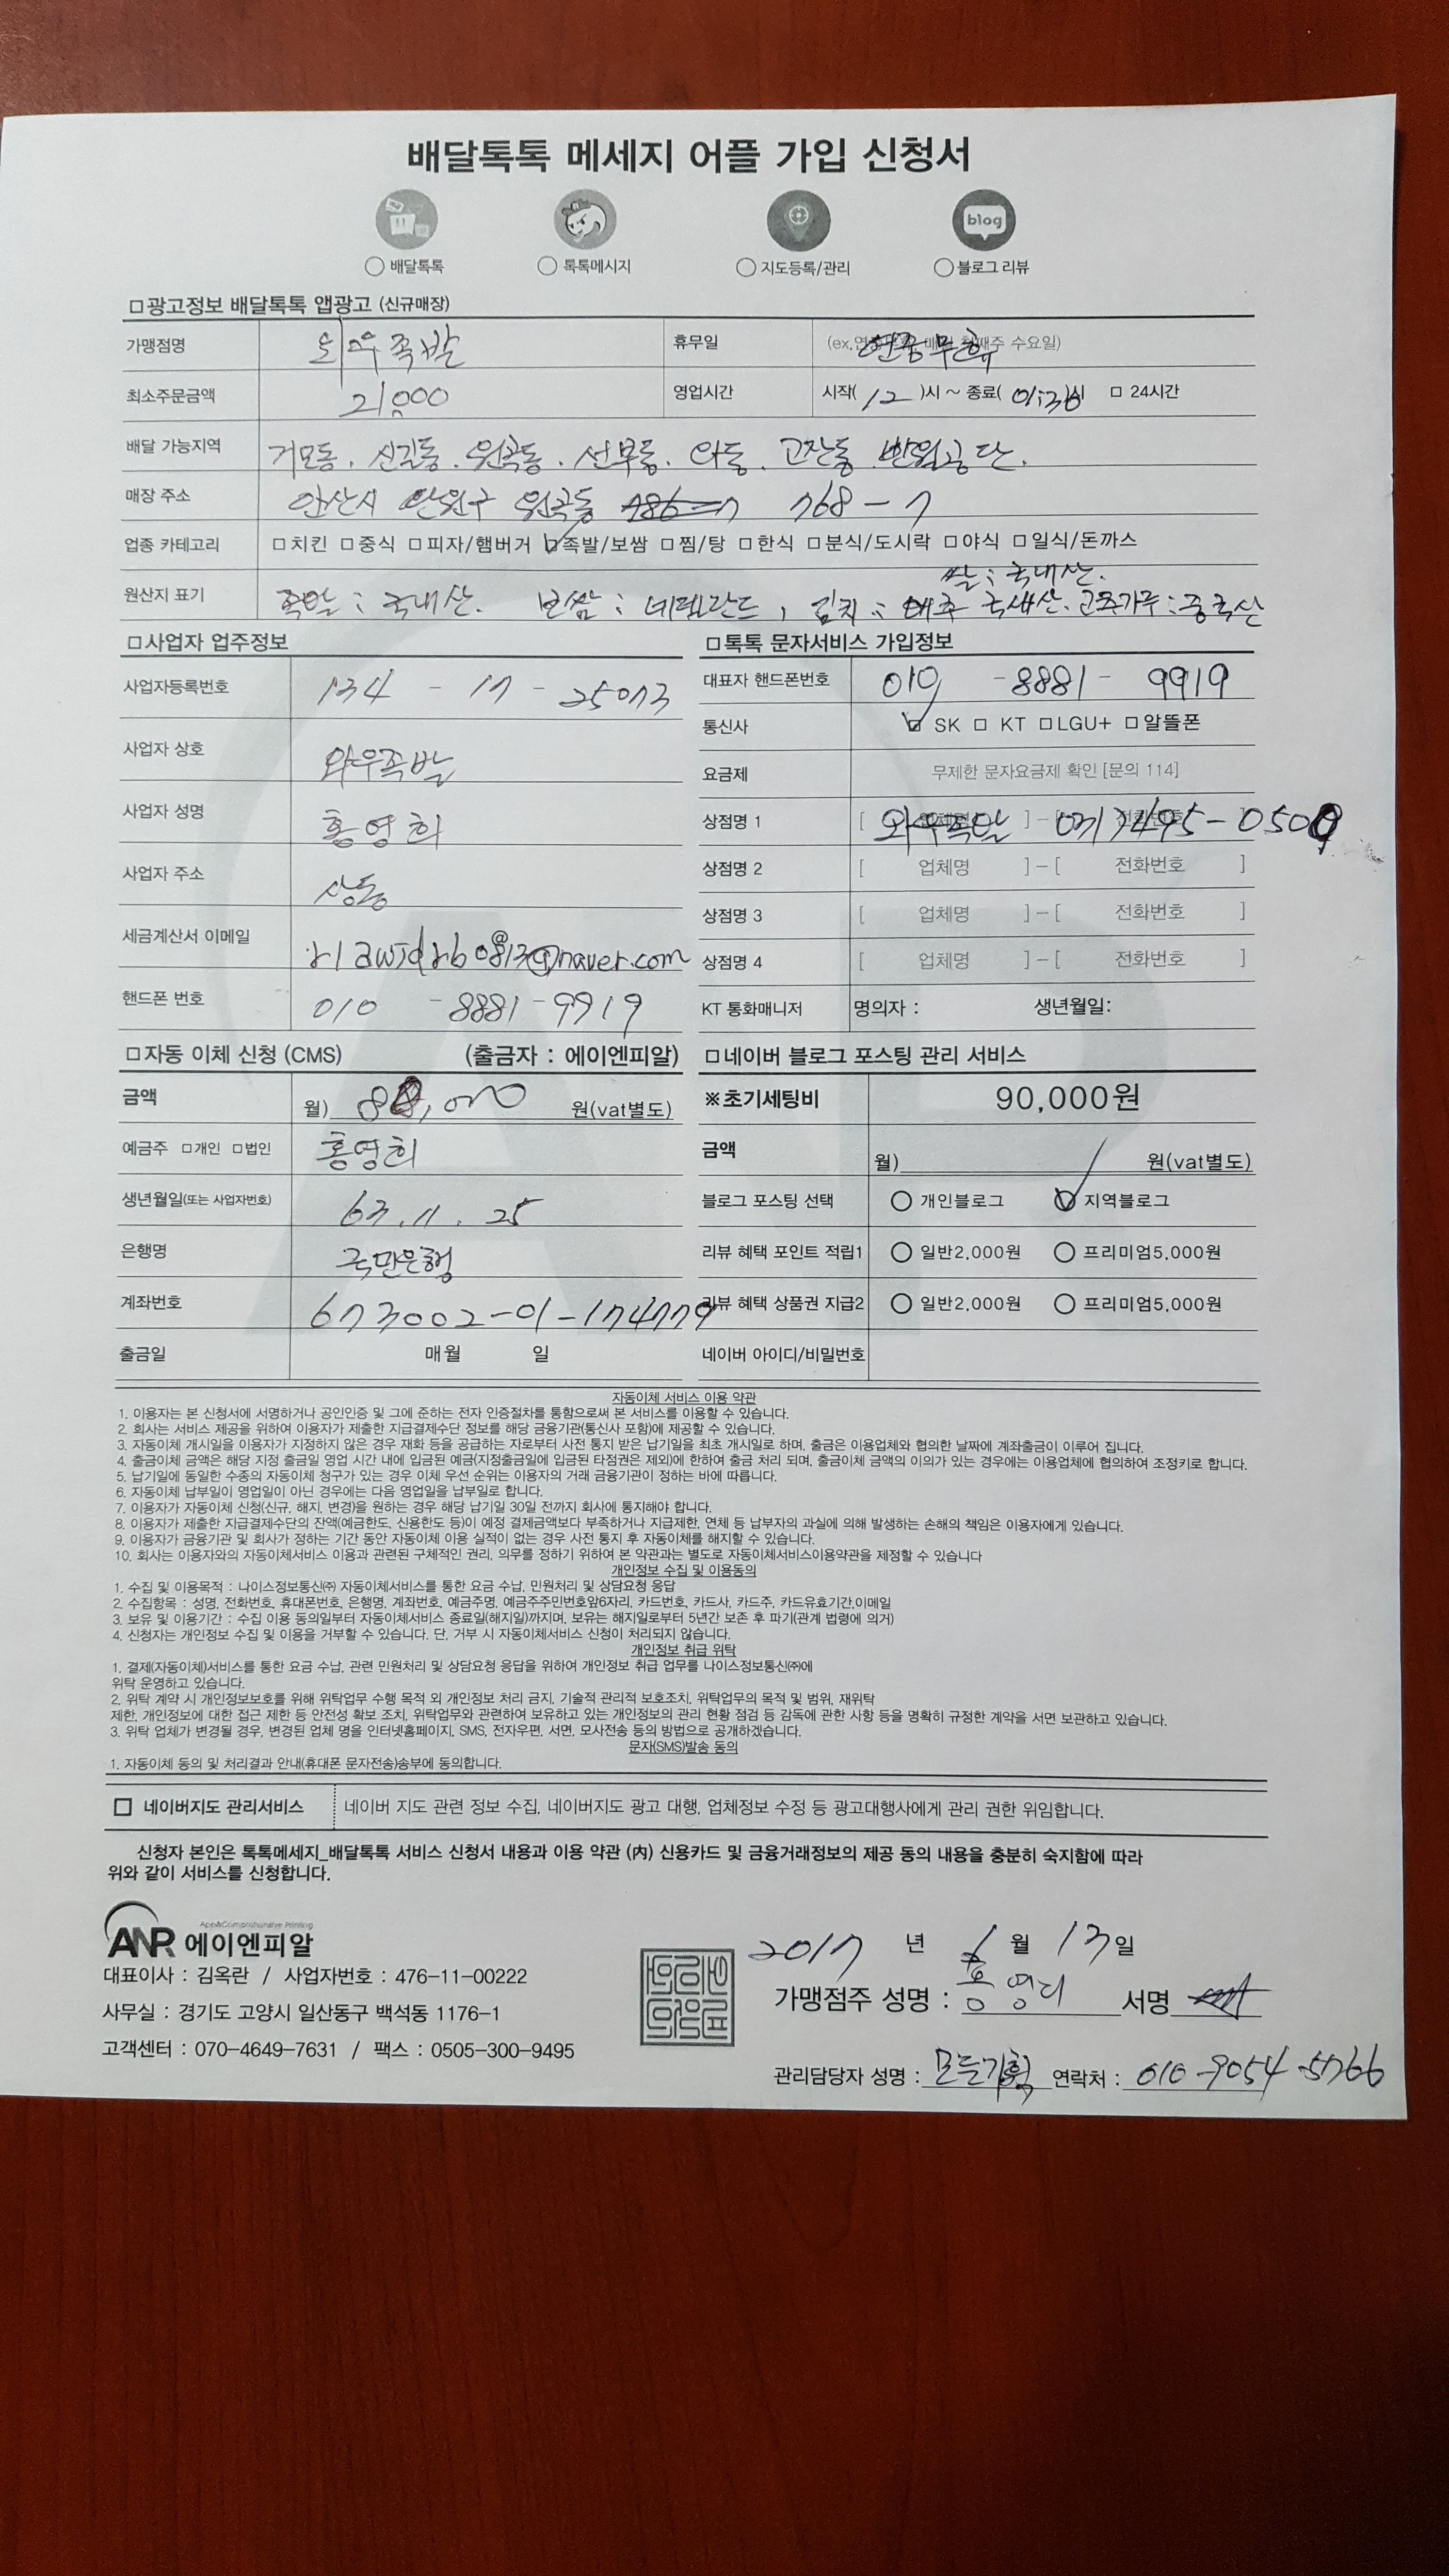 배달톡톡 메세지 어플 가입 신청서
blog
○ 배달톡톡 ○ 톡톡메시지 ○ 지도등록/관리 ○ 블로그 리뷰
□광고정보 배달톡톡 앱광고 (신규매장)
가맹점명 와우족발 휴무일 (ex.연중무휴, 매월 첫째주 수요일) 연중무휴
최소주문금액 21,000 영업시간 시작( 12 )시 ~ 종료( 01:30 )시 □ 24시간
배달 가능지역 거모동. 신길동. 원곡동. 선부동. 와동. 고잔동. 반월공단.
매장 주소 안산시 단원구 원곡동 768-7
업종 카테고리 □치킨 □중식 □피자/햄버거 ☑족발/보쌈 □찜/탕 □한식 □분식/도시락 □야식 □일식/돈까스
쌀 : 국내산.
원산지 표기 족발 : 국내산. 보쌈 : 네덜란드, 김치 : 배추 국내산. 고추가루 : 중국산
□사업자 업주정보 □톡톡 문자서비스 가입정보
사업자등록번호 134 - 17 - 25073
대표자 핸드폰번호 010 - 8881 - 9919
통신사 ☑ SK □ KT □LGU+ □알뜰폰
사업자 상호 와우족발
요금제 무제한 문자요금제 확인 [문의 114]
사업자 성명 홍영희
상점명 1 [ 와우족발 ] - [ 031)495-0509
사업자 주소 상동
상점명 2 [ 업체명 ] - [ 전화번호 ]
상점명 3 [ 업체명 ] - [ 전화번호 ]
세금계산서 이메일 @naver.com
상점명 4 [ 업체명 ] - [ 전화번호 ]
핸드폰 번호 010 - 8881 - 9919
KT 통화매니저 명의자 : 생년월일:
□자동 이체 신청 (CMS) (출금자 : 에이엔피알) □네이버 블로그 포스팅 관리 서비스
금액 월) 88,000 원(vat별도) ※초기세팅비 90,000원
예금주 □개인 □법인 홍영희 금액 월) 원(vat별도)
생년월일(또는 사업자번호) 63. 11. 25 블로그 포스팅 선택 ○ 개인블로그 ☑ 지역블로그
은행명 국민은행 리뷰 혜택 포인트 적립1 ○ 일반2,000원 ○ 프리미엄5,000원
계좌번호 673002-01-174779 리뷰 혜택 상품권 지급2 ○ 일반2,000원 ○ 프리미엄5,000원
출금일 매월 일 네이버 아이디/비밀번호
자동이체 서비스 이용 약관
1. 이용자는 본 신청서에 서명하거나 공인인증 및 그에 준하는 전자 인증절차를 통함으로써 본 서비스를 이용할 수 있습니다.
2. 회사는 서비스 제공을 위하여 이용자가 제출한 지급결제수단 정보를 해당 금융기관(통신사 포함)에 제공할 수 있습니다.
3. 자동이체 개시일을 이용자가 지정하지 않은 경우 재화 등을 공급하는 자로부터 사전 통지 받은 납기일을 최초 개시일로 하며, 출금은 이용업체와 협의한 날짜에 계좌출금이 이루어 집니다.
4. 출금이체 금액은 해당 지정 출금일 영업 시간 내에 입금된 예금(지정출금일에 입금된 타점권은 제외)에 한하여 출금 처리 되며, 출금이체 금액의 이의가 있는 경우에는 이용업체에 협의하여 조정키로 합니다.
5. 납기일에 동일한 수종의 자동이체 청구가 있는 경우 이체 우선 순위는 이용자의 거래 금융기관이 정하는 바에 따릅니다.
6. 자동이체 납부일이 영업일이 아닌 경우에는 다음 영업일을 납부일로 합니다.
7. 이용자가 자동이체 신청(신규, 해지, 변경)을 원하는 경우 해당 납기일 30일 전까지 회사에 통지해야 합니다.
8. 이용자가 제출한 지급결제수단의 잔액(예금한도, 신용한도 등)이 예정 결제금액보다 부족하거나 지급제한, 연체 등 납부자의 과실에 의해 발생하는 손해의 책임은 이용자에게 있습니다.
9. 이용자가 금융기관 및 회사가 정하는 기간 동안 자동이체 이용 실적이 없는 경우 사전 통지 후 자동이체를 해지할 수 있습니다.
10. 회사는 이용자와의 자동이체서비스 이용과 관련된 구체적인 권리, 의무를 정하기 위하여 본 약관과는 별도로 자동이체서비스이용약관을 제정할 수 있습니다
개인정보 수집 및 이용동의
1. 수집 및 이용목적 : 나이스정보통신㈜ 자동이체서비스를 통한 요금 수납, 민원처리 및 상담요청 응답
2. 수집항목 : 성명, 전화번호, 휴대폰번호, 은행명, 계좌번호, 예금주명, 예금주주민번호앞6자리, 카드번호, 카드사, 카드주, 카드유효기간,이메일
3. 보유 및 이용기간 : 수집 이용 동의일부터 자동이체서비스 종료일(해지일)까지며, 보유는 해지일로부터 5년간 보존 후 파기(관계 법령에 의거)
4. 신청자는 개인정보 수집 및 이용을 거부할 수 있습니다. 단, 거부 시 자동이체서비스 신청이 처리되지 않습니다.
개인정보 취급 위탁
1. 결제(자동이체)서비스를 통한 요금 수납, 관련 민원처리 및 상담요청 응답을 위하여 개인정보 취급 업무를 나이스정보통신㈜에
위탁 운영하고 있습니다.
2. 위탁 계약 시 개인정보보호를 위해 위탁업무 수행 목적 외 개인정보 처리 금지, 기술적 관리적 보호조치, 위탁업무의 목적 및 범위, 재위탁
제한, 개인정보에 대한 접근 제한 등 안전성 확보 조치, 위탁업무와 관련하여 보유하고 있는 개인정보의 관리 현황 점검 등 감독에 관한 사항 등을 명확히 규정한 계약을 서면 보관하고 있습니다.
3. 위탁 업체가 변경될 경우, 변경된 업체 명을 인터넷홈페이지, SMS, 전자우편, 서면, 모사전송 등의 방법으로 공개하겠습니다.
문자(SMS)발송 동의
1. 자동이체 동의 및 처리결과 안내(휴대폰 문자전송)송부에 동의합니다.
□ 네이버지도 관리서비스 네이버 지도 관련 정보 수집, 네이버지도 광고 대행, 업체정보 수정 등 광고대행사에게 관리 권한 위임합니다.
신청자 본인은 톡톡메세지_배달톡톡 서비스 신청서 내용과 이용 약관 (內) 신용카드 및 금융거래정보의 제공 동의 내용을 충분히 숙지함에 따라
위와 같이 서비스를 신청합니다.
App&Comprehensive Printing
ANR 에이엔피알
2017 년 6 월 13 일
대표이사 : 김옥란 / 사업자번호 : 476-11-00222
가맹점주 성명 : 홍영희 서명
사무실 : 경기도 고양시 일산동구 백석동 1176-1
고객센터 : 070-4649-7631 / 팩스 : 0505-300-9495
관리담당자 성명 : 모든기획 연락처 : 010-9054-5766